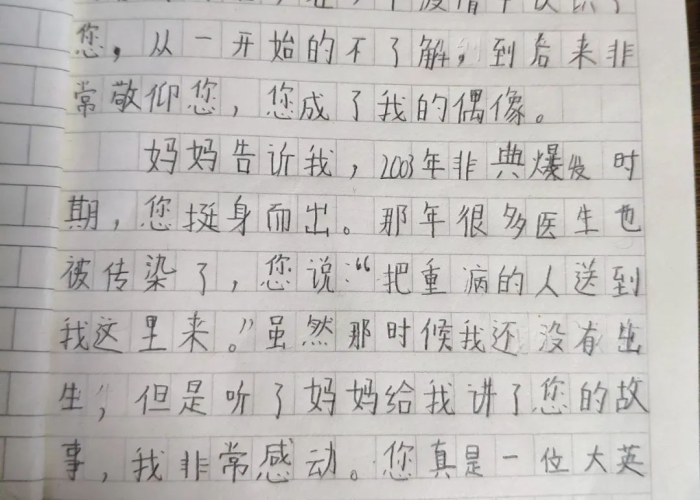 您，从一开始的不了解，到后来非
常敬仰您，您成了我的偶像。
妈妈告诉我，2003年非典爆发时
期，您挺身而出。那年很多医生也
被传染了，您说：“把重病的人送到
我这里来。”虽然那时候我还没有出
生，但是听了妈妈给我讲了您的故
事，我非常感动。您真是一位大英